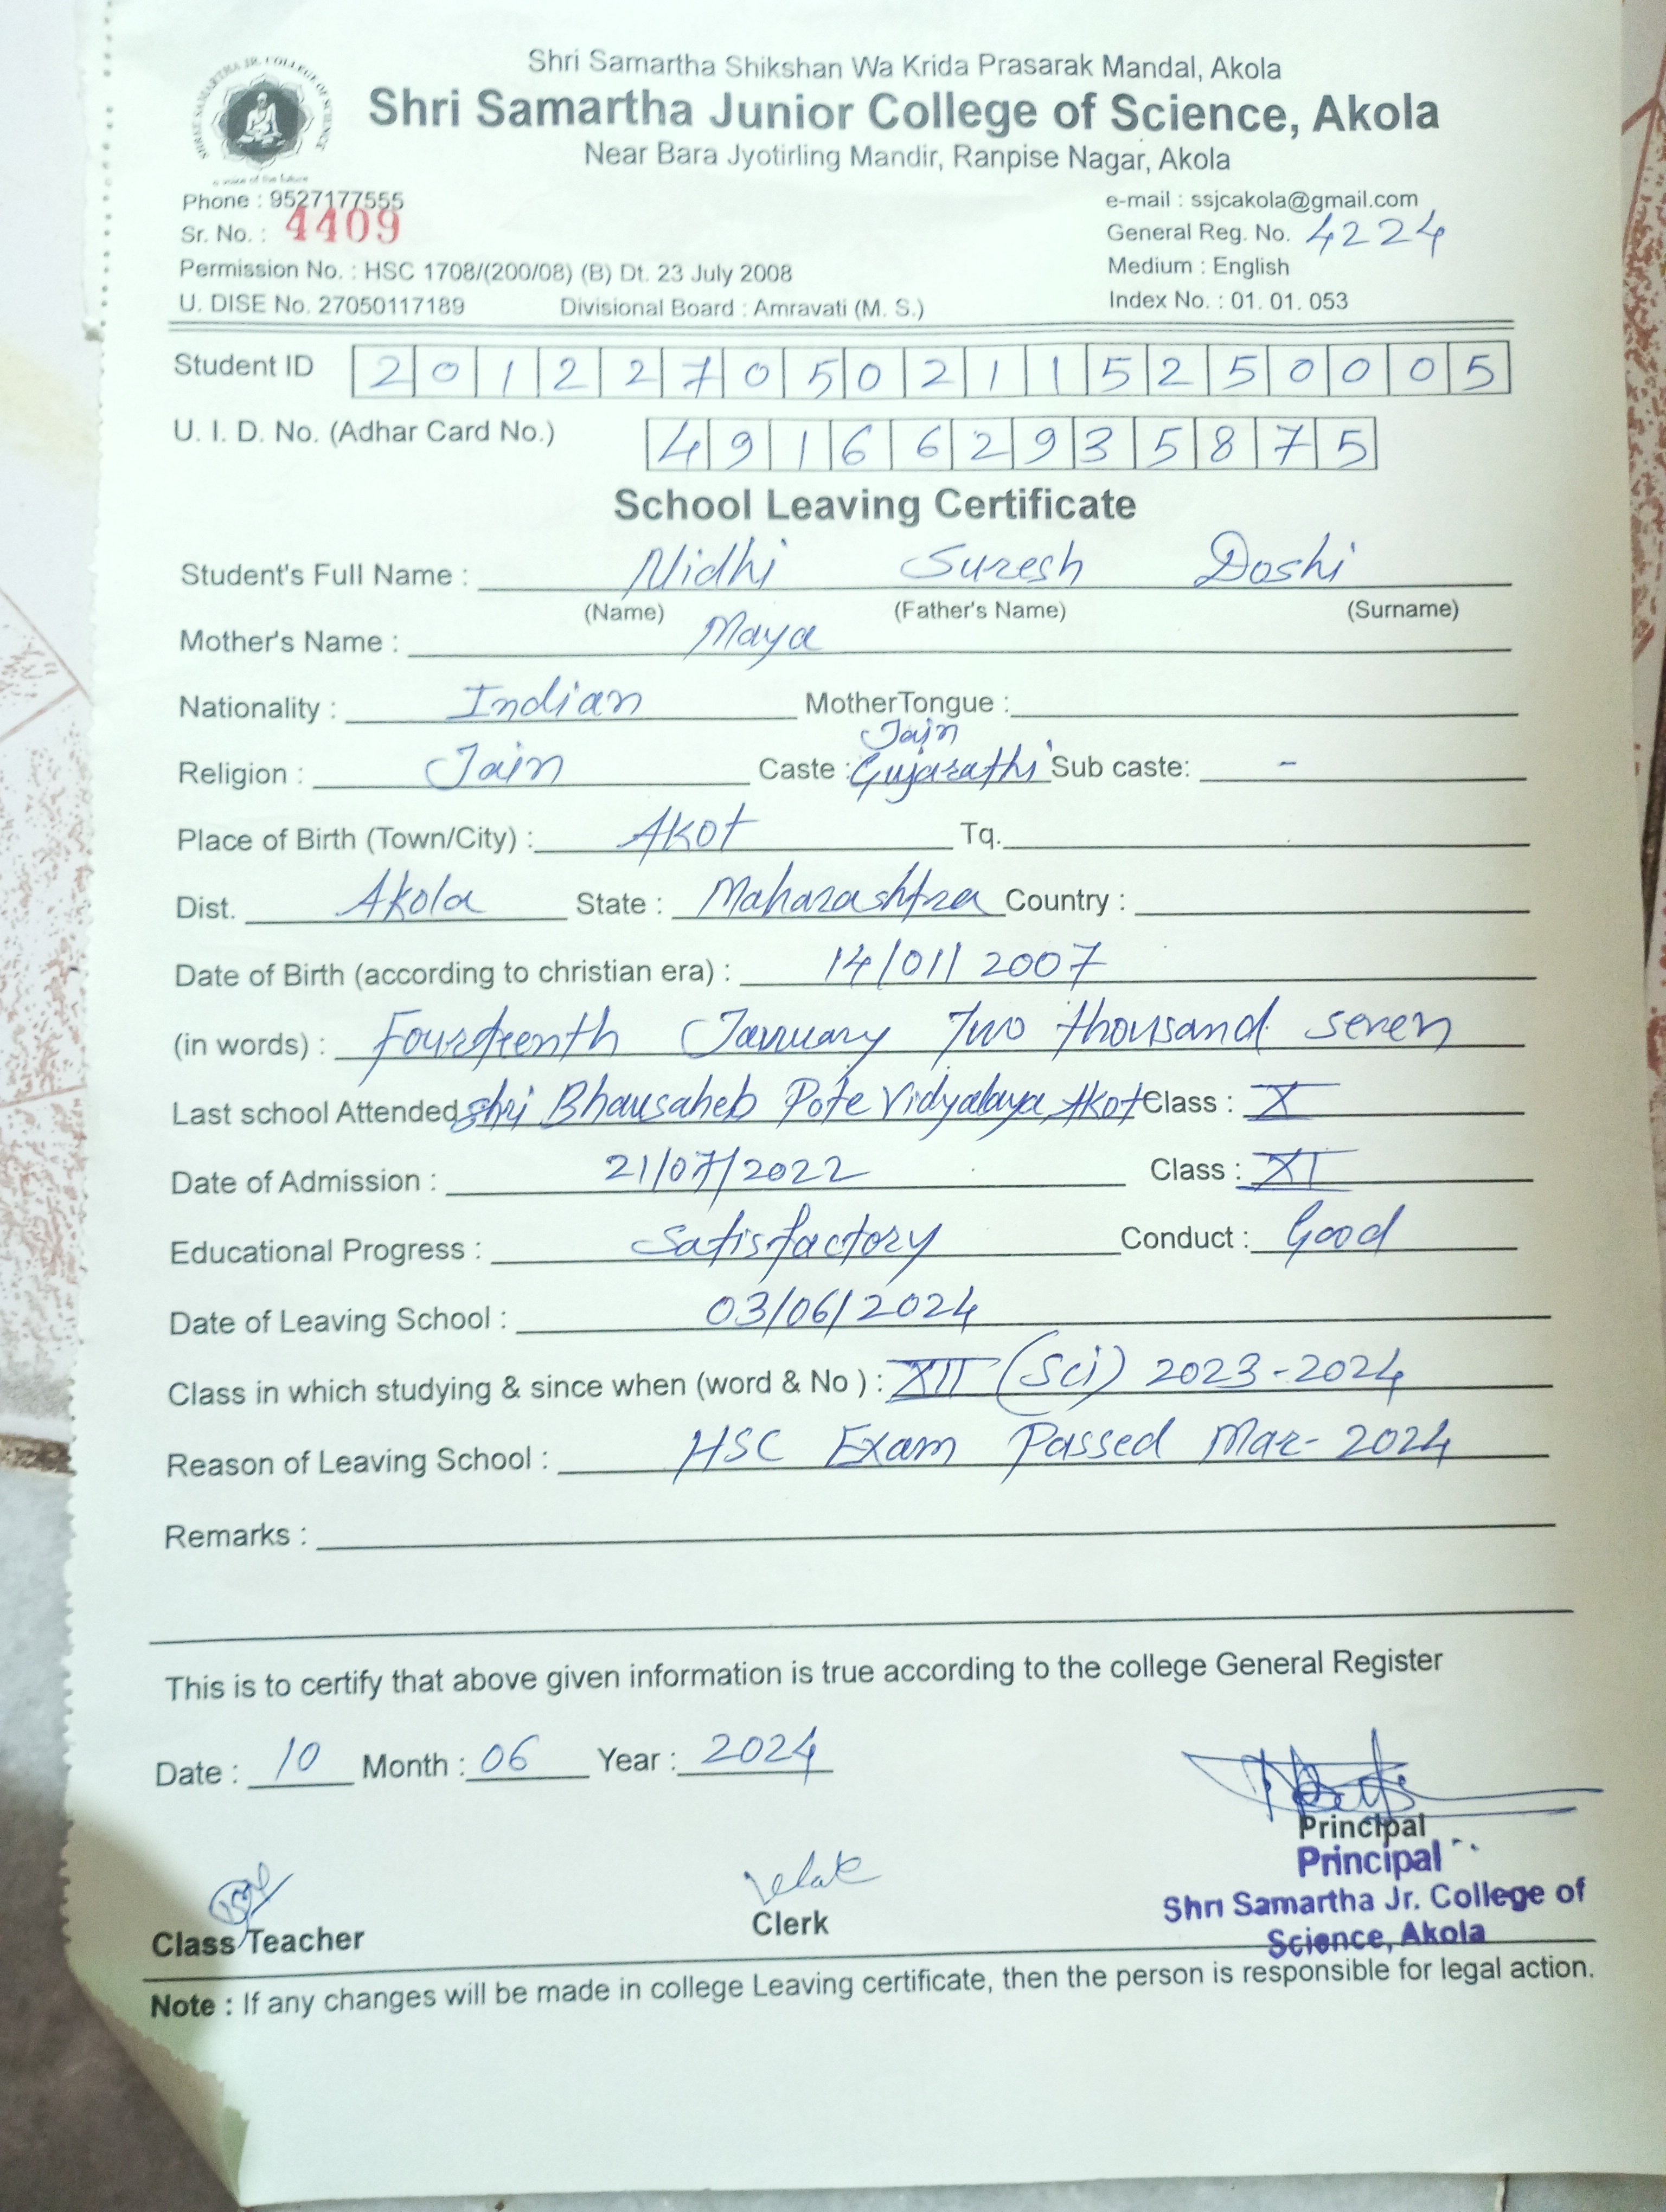 SHREE SAMARTHA JR. COLLEGE OF SCIENCE
a voice of the future
Shri Samartha Shikshan Wa Krida Prasarak Mandal, Akola
Shri Samartha Junior College of Science, Akola
Near Bara Jyotirling Mandir, Ranpise Nagar, Akola
Phone : 9527177555 e-mail : ssjcakola@gmail.com
Sr. No. : 4409 General Reg. No. 4224
Permission No. : HSC 1708/(200/08) (B) Dt. 23 July 2008 Medium : English
U. DISE No. 27050117189 Divisional Board : Amravati (M. S.) Index No. : 01. 01. 053
Student ID 2012270502115250005
U. I. D. No. (Adhar Card No.) 491662935875
School Leaving Certificate
Student's Full Name : Nidhi Suresh Doshi
(Name) (Father's Name) (Surname)
Mother's Name : Maya
Nationality : Indian MotherTongue :
Jain
Religion : Jain Caste : Gujarathi Sub caste: -
Place of Birth (Town/City) : Akot Tq.
Dist. Akola State : Maharashtra Country :
Date of Birth (according to christian era) : 14/01/2007
(in words) : Fourteenth January Two thousand seven
Last school Attended shri Bhausaheb Pote Vidyalaya Akot Class : X
Date of Admission : 21/07/2022 Class : XI
Educational Progress : Satisfactory Conduct : Good
Date of Leaving School : 03/06/2024
Class in which studying & since when (word & No ) : XII (Sci) 2023-2024
Reason of Leaving School : HSC Exam Passed Mar- 2024
Remarks :
This is to certify that above given information is true according to the college General Register
Date : 10 Month : 06 Year : 2024
Principal
Principal
Shri Samartha Jr. College of
Science, Akola
Class Teacher Clerk
Note : If any changes will be made in college Leaving certificate, then the person is responsible for legal action.